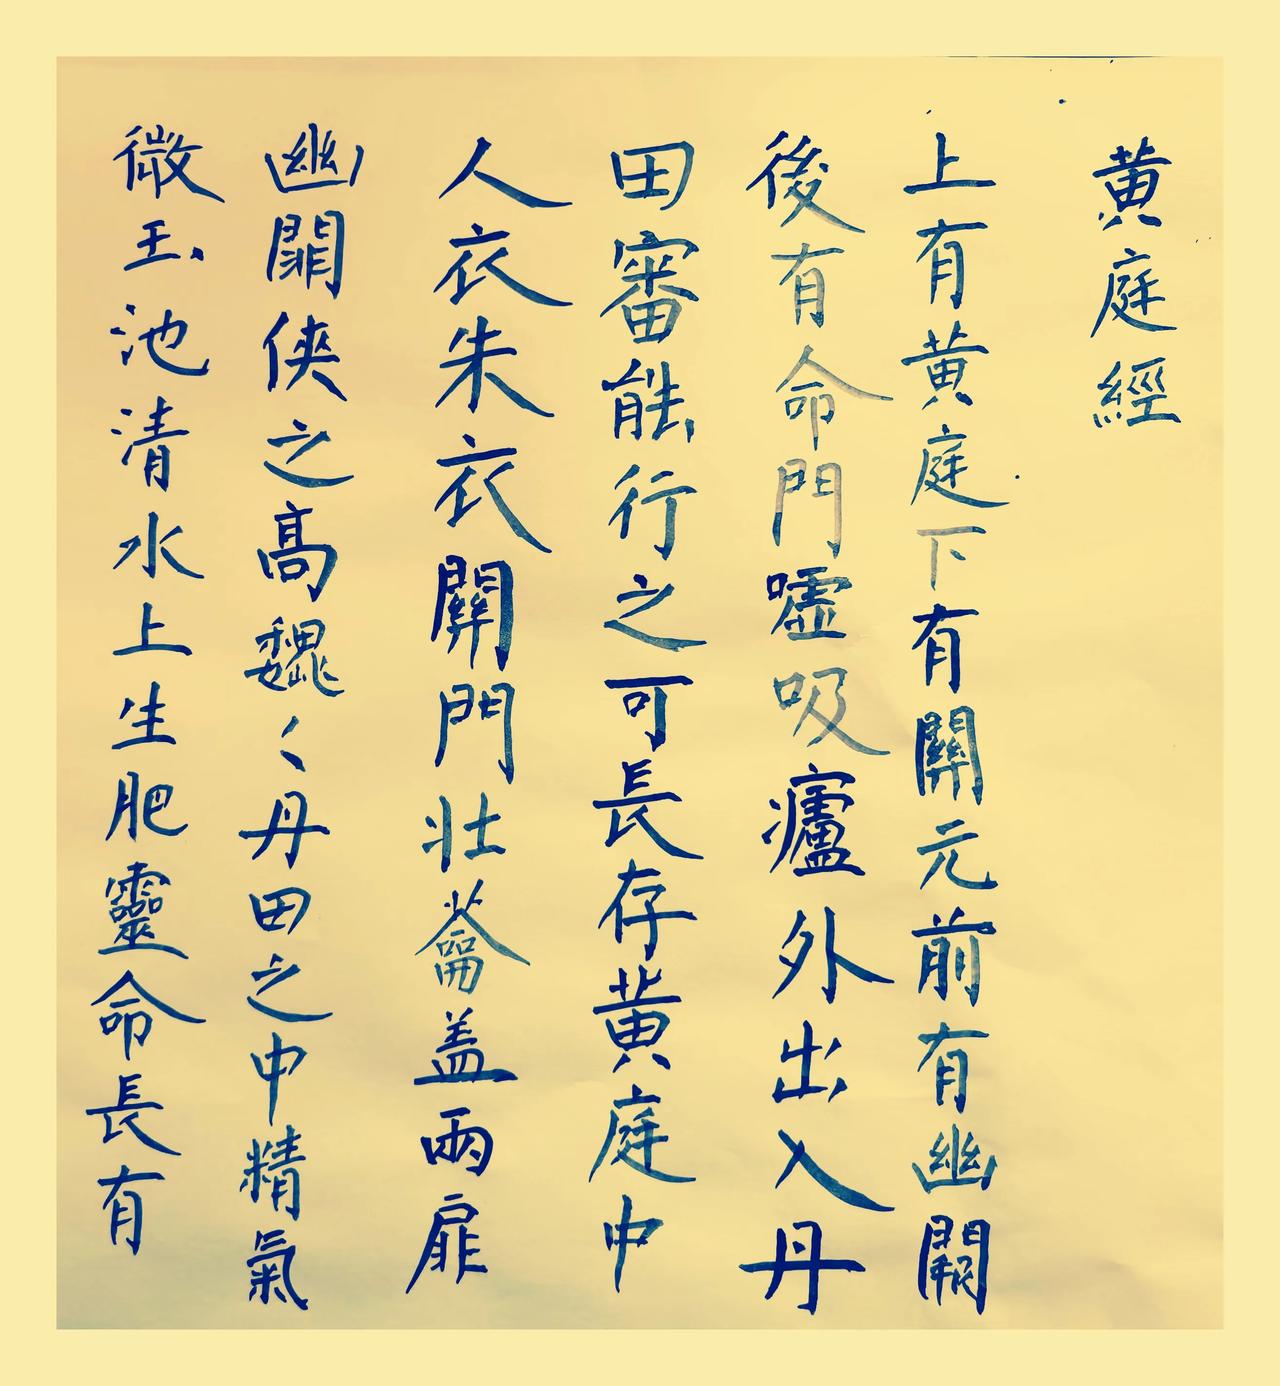 黄庭經
上有黄庭下有關元前有幽闕
後有命門嘘吸廬外出入丹
田審能行之可長存黄庭中
人衣朱衣關門壯蘥盖兩扉
幽闗侠之髙魏〻丹田之中精氣
微玉池清水上生肥靈命長有